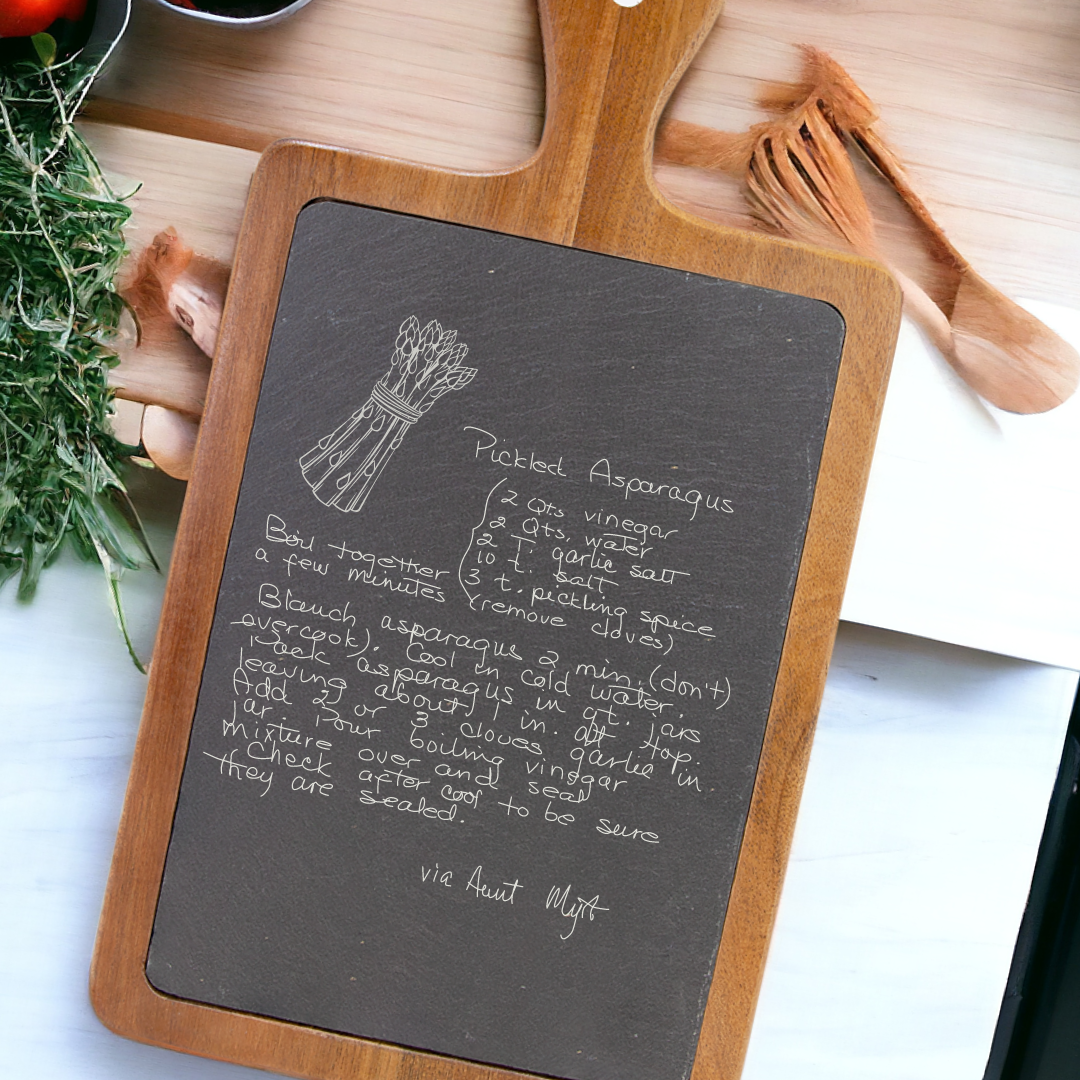 Pickled Asparagus
2 Qts vinegar
2 Qts. water
2 T. garlic salt
10 t. salt
3 t. pickling spice
(remove cloves)
Boil together
a few minutes
Blanch asparagus 2 min. (don't
overcook). Cool in cold water.
Pack asparagus in qt. jars
leaving about 1 in. at top.
Add 2 or 3 cloves garlic in
jar. Pour boiling vinegar
mixture over and seal
Check after cool to be sure
they are sealed.
via Aunt Myrt